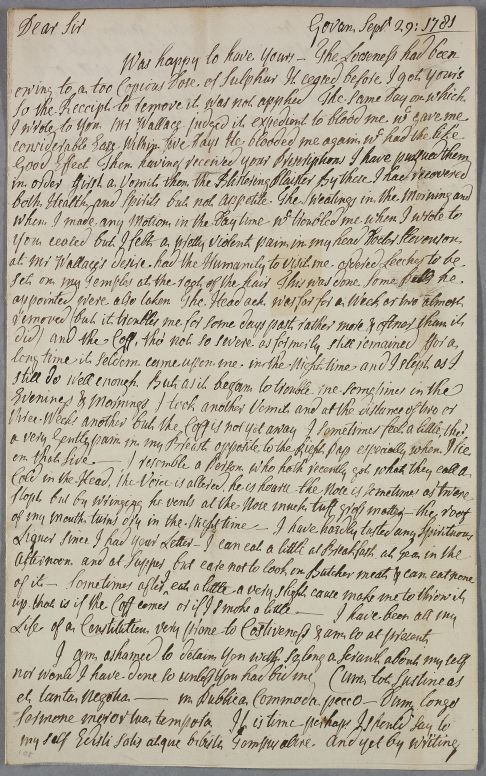 Dear Sir
Govan Septr 29: 1781
Was happy to have yours – The Looseness had been
owing to a too Copious Dose of Sulphur It ceased before I got yours
So the Receipt to remove it was not applied The same day on which
I wrote to you Mr Wallace judged it expedient to blood me wc gave me
considerable Ease Within five days He blooded me again wc had the like
Good Effect Then having received your Prescriptions I have pursued them
in order first a Vomit then the Blistering Plaister By these I had recovered
both Health and Spirits but not appetite The Sweatings in the Morning and
when I made any Motion in the Day time wc troubled me when I wrote to
you ceased but I felt a pretty violent pain in my head Doctor Stevenson
at Mr Wallace's desire had the Humanity to visit me ordered Leeches to be
set on my Temples at the root of the hair This was done some he
appointed were also taken The Head ach was for a Week or two almost
removed but it troubles me for some days past rather more & oftner than it
did) and the Coff tho' not so severe as formerly still remained (for a
long time it seldom came upon me in the Night time and I slept as I
still do well enough But as it began to trouble me sometimes in the
Evenings & Mornings I took another Vomit and at the distance of two or
three Weeks another but the Coff is not yet away I sometimes feel a little tho'
a very Gentle pain in my Breast opposite to the Right Pap especially when I lie
on that side — I resemble a Person who hath recently got what they call a
Cold in the Head, the Voice is altered he is hoarse the Nose is sometimes as twere
stopt but by wringing he vents at the Nose much tuff gross matter – the roof
of my mouth turns dry in the Night time – I have hardly tasted any Spirituous
Liquor since I had your Letter – I can eat a little at Breakfast at Tea in the
Afternoon and at Supper but care not to look on Butcher meat & can eat none
of it – Sometimes after I eat a little a very slight cause make me to throw it
up that is if the Coff comes or if I smoke a little — I have been all my
Life of a Constitution very prone to Costiveness & am so at present
I am ashamed to detain you with so long a Scrawl about my self
nor would I have done so unless you had bid me Cum tot sustineas
et tanta Negotia — in Publica Commoda peccem – Dum longo
sermone meror tua tempora It is time perhaps I should say to
my self Edisti satis atque bibisti Tempus abire And yet by writing